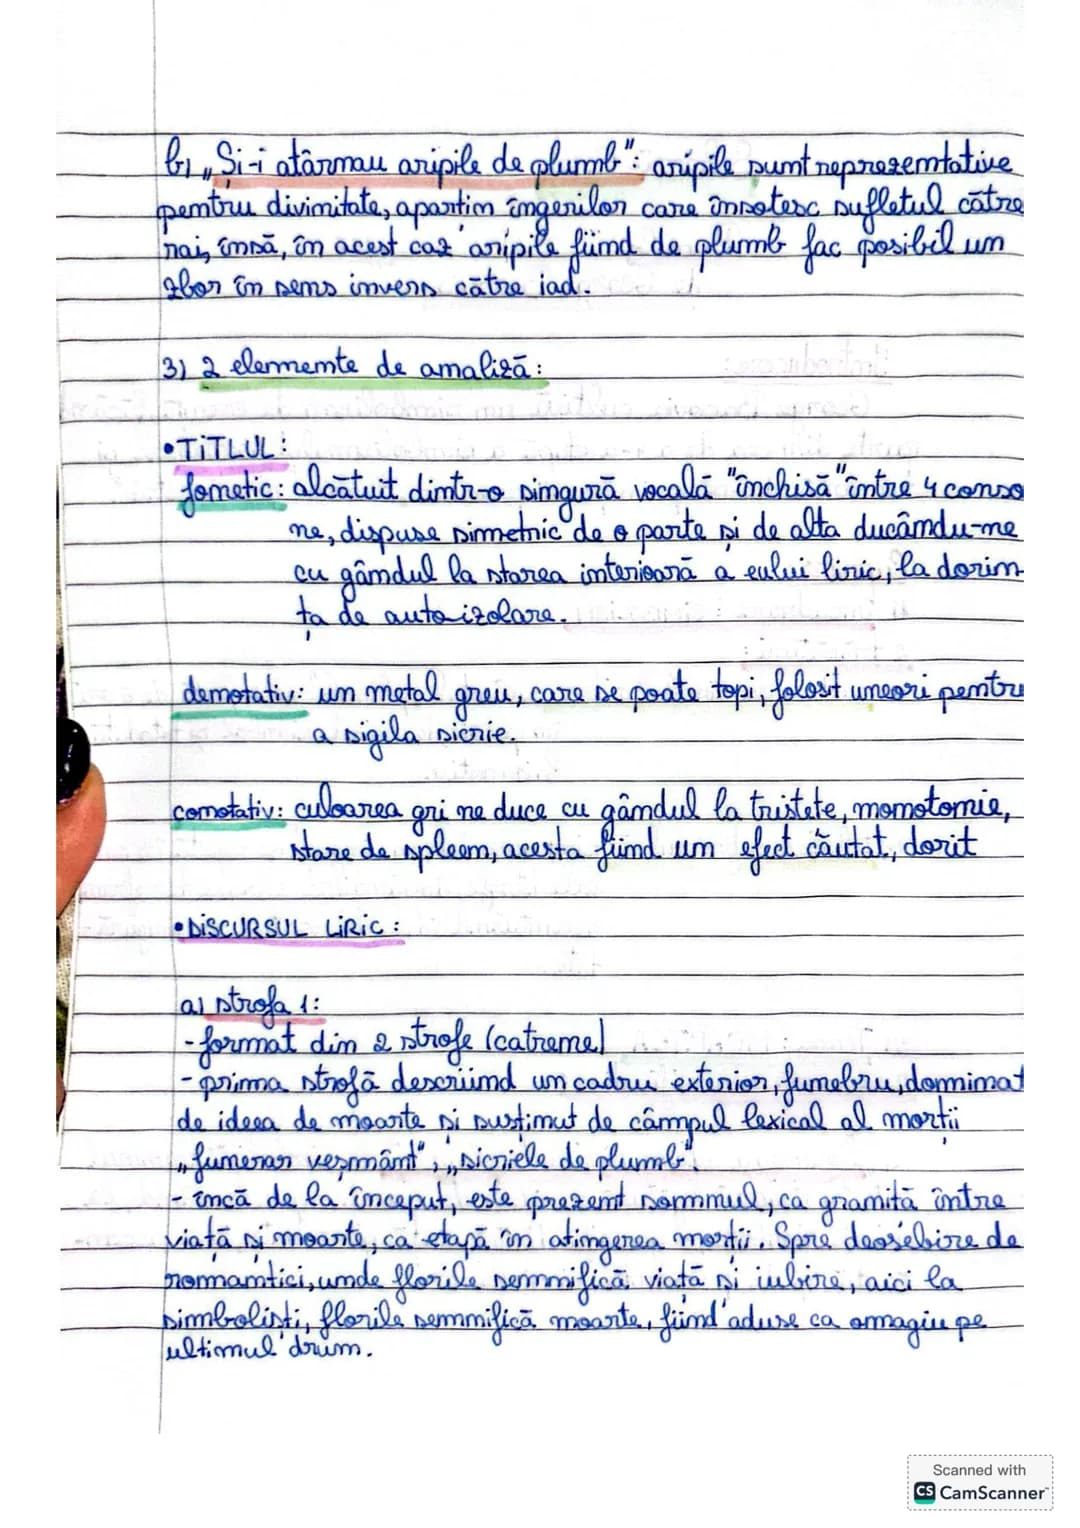 b) „Și-i atârnau aripile de plumb": aripile sunt reprezentative
pentru divinitate, aparțin îngerilor care însoțesc sufletul către
rai, însă, în acest caz aripile fiind de plumb fac posibil un
zbor în sens invers către iad.
3) 2 elemente de analiză:
•TITLUL:
fonetic: alcătuit dintr-o singură vocală "închisă" între 4 conso
ne, dispuse simetric de o parte și de alta ducându-ne
cu gândul la starea interioară a eului liric, la dorin-
ța de autoizolare.
denotativ: un metal greu, care se poate topi, folosit uneori pentru
a sigila sicrie.
conotativ: culoarea gri ne duce cu gândul la tristețe, monotonie,
stare de spleen, acesta fiind un efect căutat, dorit
•DISCURSUL LIRIC:
a) strofa 1:
-format din 2 strofe (catrene)
-prima strofă descriind un cadru exterior, funebru, domninat
de ideea de moarte și susținut de câmpul lexical al morții
„funerar veșmânt", „sicriele de plumb".
- încă de la început, este prezent somnul, ca graniță între
viață și moarte, ca etapă în atingerea morții. Spre deosebire de
romantici, unde florile semnifică viață și iubire, aici la
simboliști, florile semnifică moarte, fiind aduse ca omagiu pe
ultimul drum.
Scanned with
CS CamScanner